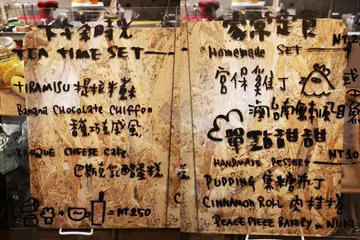 下午茶時光
TEA TIME SET
TIRAMISU 提拉米蘇
Banana Chocolate Chiffon
戚風
BASQUE CHEESE CAKE
巴斯克乳酪蛋糕
+ = NT 250
家常定食
Homemade SET NT
宮保雞丁
單點甜甜
HANDMADE DESSERT
PUDDING 焦糖布丁
CINNAMON ROLL 肉桂捲
PEACE PIECE BAKERY